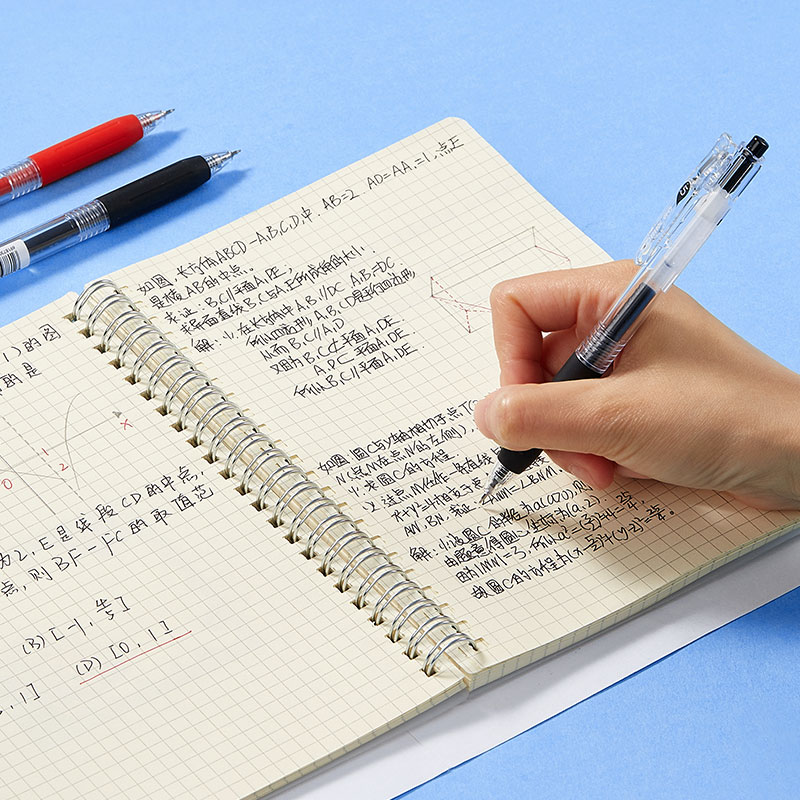 1) 的图
的是
0
1
2
x
为2, E是线段CD的中点,
点, 则BF-FC的取值范
(B) [-1, 4/5]
(D) [0, 1]
, 1]
如图, 长方体ABCD-A₁B₁C₁D₁中, AB=2 AD=AA₁=1, 点E
是棱AB的中点.
求证: B₁C//平面A₁DE,
求异面直线B₁C与A₁E所成角的大小.
解: (1) 在长方体中A₁B₁//DC A₁B₁=DC
所以四边形A₁B₁CD是平行四边形
从而B₁C//A₁D
又因为B₁C⊄平面A₁DE
A₁D⊂平面A₁DE.
所以B₁C//平面A₁DE.
如图, 圆C与y轴相切于点T(
N(点M在点N的左侧),
(1) 求圆C的方程.
(2) 过点M任作一条直线
x²+y²=4相交于
AN, BN, 求证: ∠ANM=∠BNM.
解: (1) 设圆C的半径为a(a>0),
由题意得圆心坐标为(a, 2).
因为|MN|=3, 所以a²=(3/2)²+4=25/4,
故圆C的方程为(x-5/2)²+(y-2)²=25/4.